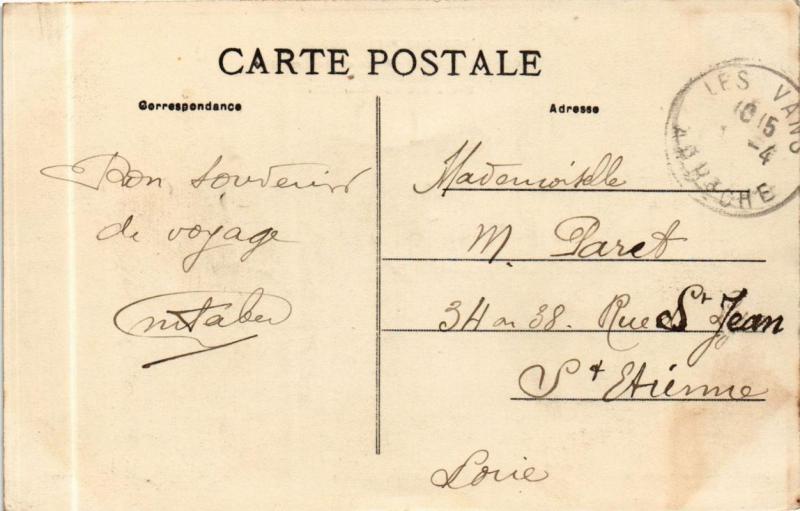 CARTE POSTALE
Correspondance
Adresse
LES VANS
10 15
-4
ARDÈCHE
Bon souvenir
de voyage
Mademoiselle
M. Paret
34 ou 38. Rue St Jean
St Etienne
Loire